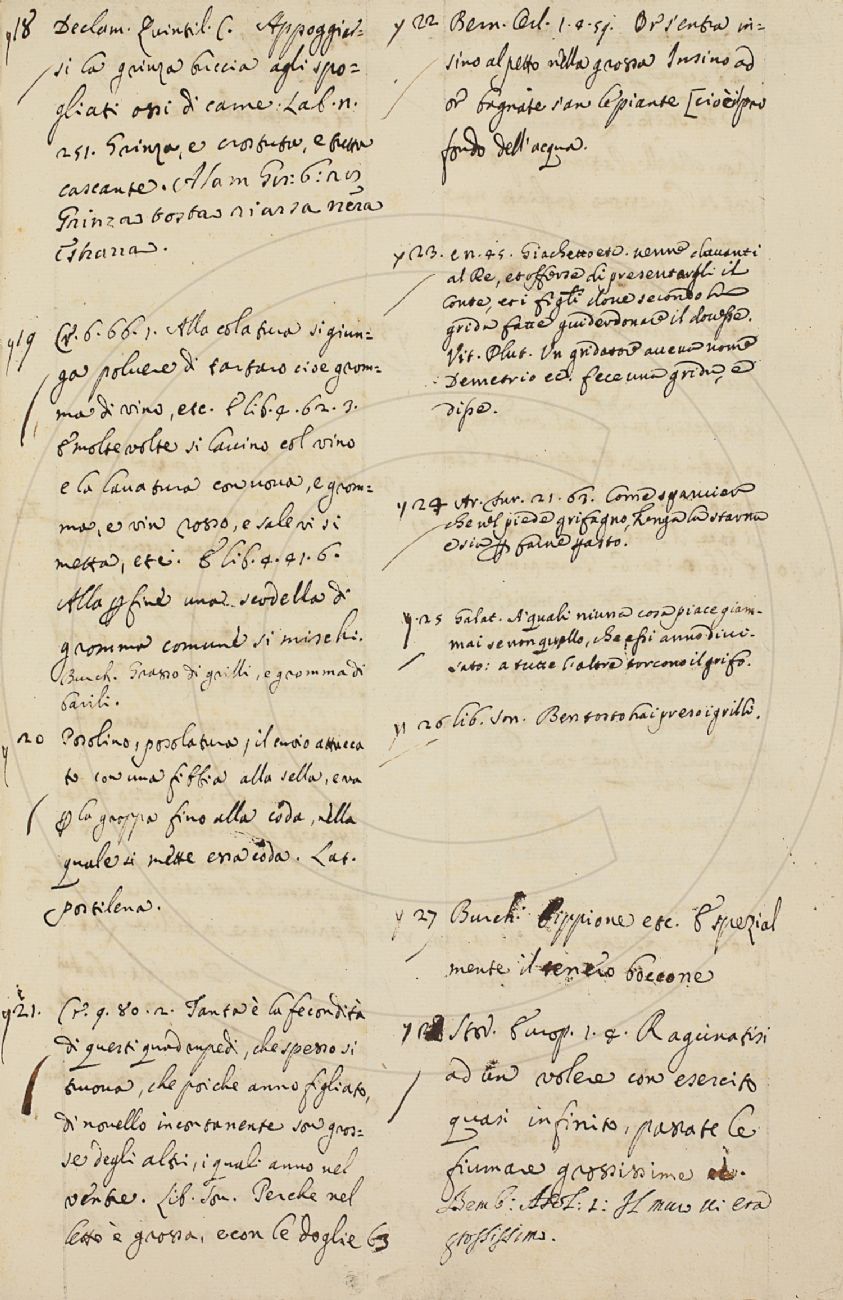 y 18 Declam. Quintil. C. Appoggiar=
si la grinza buccia agli spo=
gliati ossi di carne. Lab. n.
251. Grinza, e crostuta, e tutta
cascante. Alam Gir: 6:
Grinza tosta riarsa nera
e sharra.
y 19 Cr. 6. 66. 1. Alla colatura si giun=
ga polvere di tartaro cioè grom=
ma di vino, etc. E lib. 4. 62. 3.
E molte volte si lavino col vino
e la lavatura con uova, e grom=
ma, e vin rosso, e sale vi si
metta, etc. E lib. 4. 41. 6.
Alla perfine una scodella di
gromma comune si mischi.
Burch. Grasso di grilli, e gromma di
barili.
y 20 Posolino, posolatura, il cuoio attacca
to con una fibbia alla sella, e va
per la groppa fino alla coda, nella
quale si mette essa coda. Lat.
postilena.
y 21. Cr. 9. 80. 2. Tanta è la fecondità
di questi quadrupedi, che spesso si
truova, che poiche anno figliato,
di novello incontanente son gros=
se degli altri, i quali anno nel
ventre. Lib. Son. Perche nel
letto è grossa, e con le doglie 63
y 22 Bern. Orl. 1. 4. 59. Or s'entra in=
sino al petto nella grossa Insino ad
or bagnate s'an le piante [cioè il pro
fondo dell'acqua.
y 23. e n. 45. Giachetto etc. venne davanti
al Re, et offerse di presentargli il
Conte, et i figli dove secondo la
grida fatta guiderdonare il dovesse.
Vit. Plut. Un gridatore aveva nome
Demetrio ec. fece una grida, e
disse.
y 24 Ar. Fur. 21. 63. Come sparvier
che nel piede grifagno, tenga la starna
e sia per farne pasto.
y. 25 Galat. A' quali niuna cosa piace giam-
mai se non quello, che essi anno divi-
sato: a tutte l'altre torcono il grifo.
y 26 lib. Son. Ben tosto hai preso i grilli.
y 27 Burch: Pippione etc. E spezial
mente il tenero boccone
y 28 Stor. Europ. 1. 4. Ragunatisi
ad un volere con esercito
quasi infinito, passate le
fiumare grossissime
Bemb: Asol: 1: Il mare vi era
grossissimo.